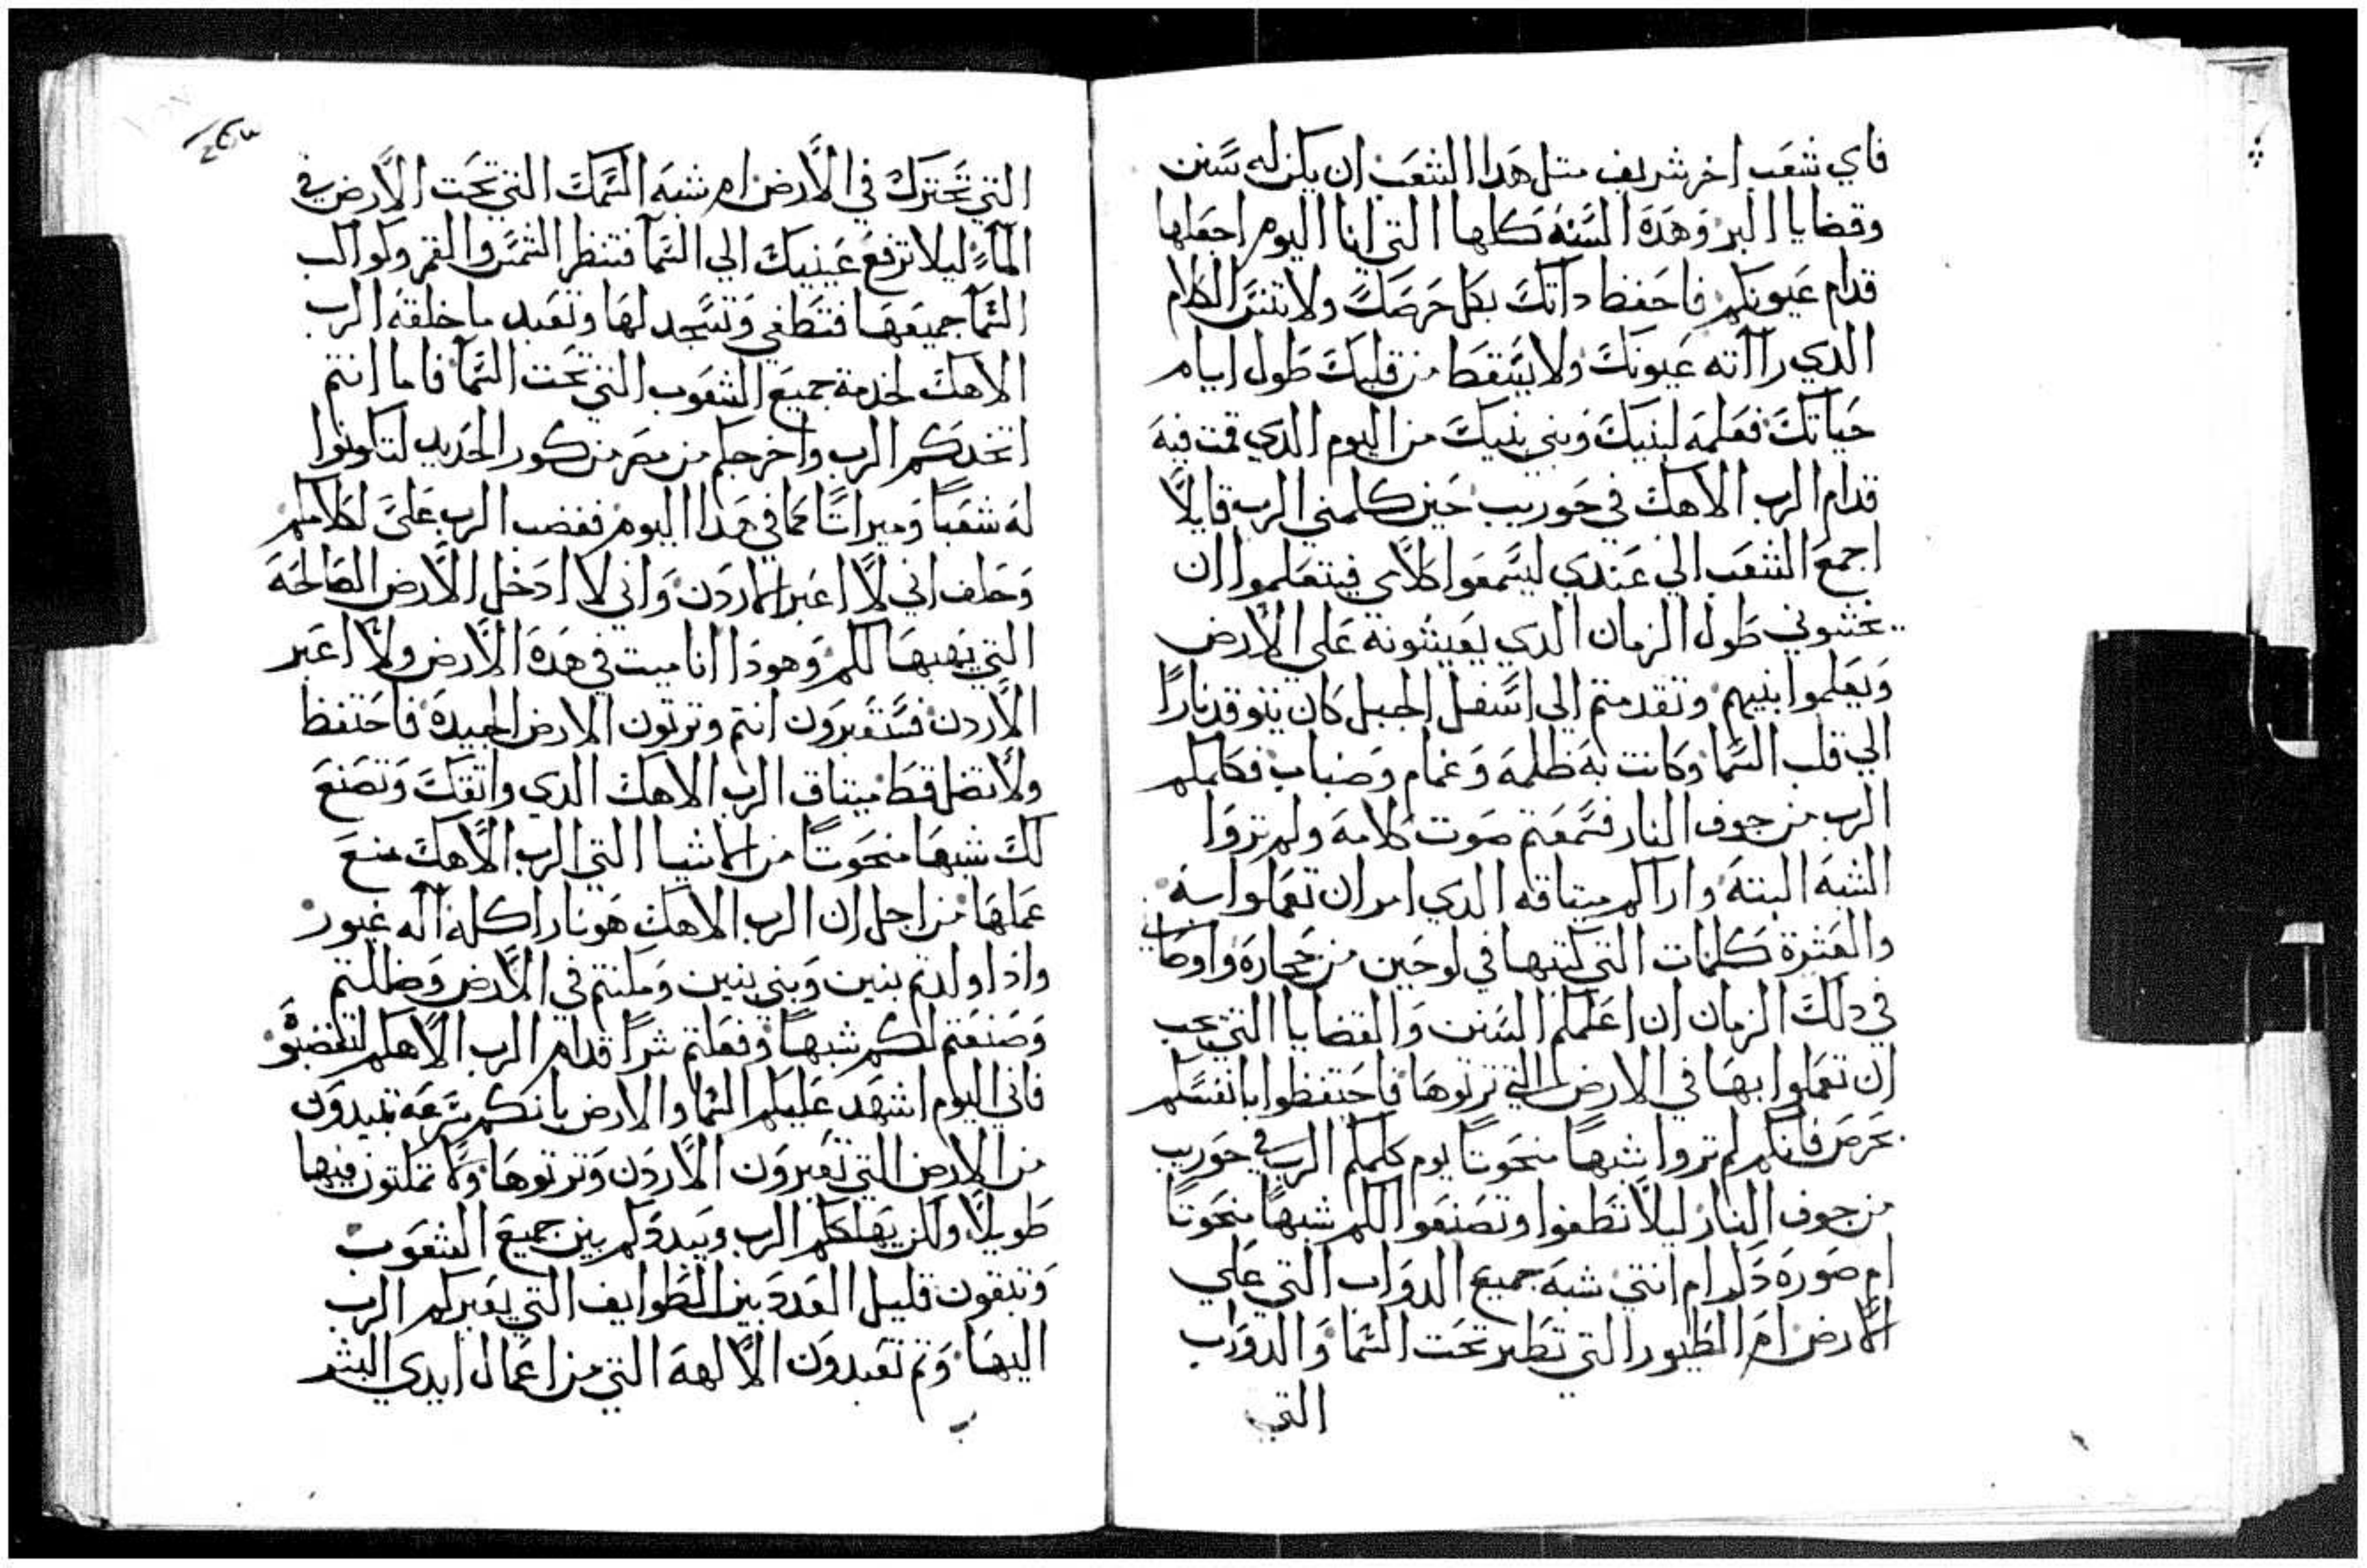 فاي شعب اخر شريف متل هدا الشعب ان يكن له سنن
وقضايا البر وهده السنه كلها التي انا اليوم اجعلها
قدام عيونكم فاحفظ داتك بكل حرصك ولا تنس الكلام
الدي راآته عيونك ولا يسقط من قلبك طول ايام
حياتك فعلمه لبنيك وبني بنيك من اليوم الدي قمت فيه
قدام الرب الاهك في حوريب حين كلمني الرب قايلاً
اجمع الشعب الي عندي ليسمعوا كلامي فيتعلموا ان
يخشوني طول الزمان الدي يعيشونه علي الارض
ويعلموا بنيهم وتقدمتم الي اسفل الجبل كان يتوقد ناراً
الي قلب السما وكانت به ظلمه وغمام وضباب فكلمكم
الرب من جوف النار فسمعتم صوت كلامه ولم تروا
الشبه البته واراكم ميتاقه الدي امر ان تعملوا به
والعشرة كلمات التي كتبها في لوحين من حجاره واوصاني
في دلك الزمان ان اعلمكم السنن والقضايا التي يجب
ان تعملوا بها في الارض التي ترتوها فاحتفظوا بانفسكم
بحرص فانكم لم تروا شبهاً منحوتاً يوم كلمكم الرب في حوريب
من جوف النار ليلا تطغوا وتصنعوا لكم شبهاً منحوتاً
ام صوره دكر ام انتي شبه جميع الدواب التي علي
الارض ام الطيور التي تطير تحت السما والدواب
التي
التي تحترك في الارض ام شبه السمك التي تحت الارض في
المآء ليلا ترفع عينيك الي السمآ فتنظر الشمس والقمر وكواكب
السمآ جميعها فتطغي وتسجد لها وتعبد ما خلقه الرب
الاهك لخدمة جميع الشعوب التي تحت السمآ فاما انتم
اتخدكم الرب واخرجكم من مصر من كور الحديد لتكونوا
له شعباً وميراتاً كما في هدا اليوم فغضب الرب علي لكلامكم
وحلف اني لا اعبر الاردن واني لا ادخل الارض الصالحه
التي يهبها لكم وهودا انا ميت في هده الارض ولا اعبر
الاردن فستعبرون انتم وترتون الارض الجيدة فاحتفظ
ولا تضل قط ميتاق الرب الاهك الدي واتقك وتصنع
لك شبهاً منحوتاً من الاشيا التي الرب الاهك منع
عملها من اجل ان الرب الاهك هو نار اكله آله غيور
واذا اولدتم بنين وبني بنين ومكتتم في الارض وضللتم
وصنعتم لكم شبهاً وفعلتم شراً قدام الرب الاهكم لتغضبوه
فاني اليوم اشهد عليكم السما والارض بانكم سرعه تبيدون
من الارض التي تعبرون الاردن وترتوها ولا تمكتون فيها
طويلاً ولكن يهلككم الرب ويبددكم بين جميع الشعوب
وتبقون قليل العدد بين الطوايف التي يعبركم الرب
اليها وتم تعبدون الالهه التي من اعمال ايدي البشر